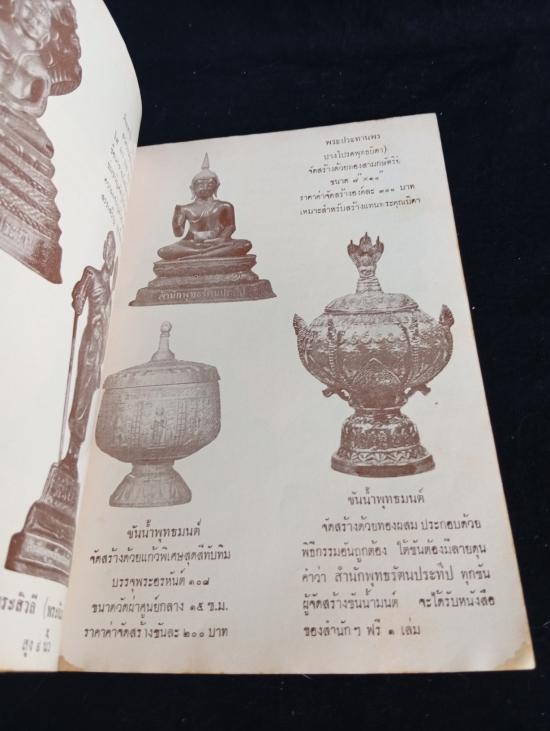 พระประทานพร
บางโปรดพุทธบิดา)
จัดสร้างด้วยทองสามกษัตริย์
ราคาค่าจัดสร้างองค์ละ ๓๐๐ บาท
เหมาะสำหรับสร้างแทนพระคุณบิดา
สำนักพุทธรัตนประทีป
ขันน้ำพุทธมนต์
จัดสร้างด้วยแก้วพิเศษสุดสีทับทิม
บรรจุพระอรหันต์ ๑๐๘
ขนาดวัดผ่าศูนย์กลาง ๑๕ ซ.ม.
ราคาค่าจัดสร้างขันละ ๒๐๐ บาท
ขันน้ำพุทธมนต์
จัดสร้างด้วยทองผสม ประกอบด้วย
พิธีกรรมอันถูกต้อง ใต้ขันต้องมีลายดุน
คำว่า สำนักพุทธรัตนประทีป ทุกขัน
ผู้จัดสร้างขันน้ำมนต์ จะได้รับหนังสือ
ของสำนักฯ ฟรี ๑ เล่ม
ระสิวลี
สูง ๙ นิ้ว